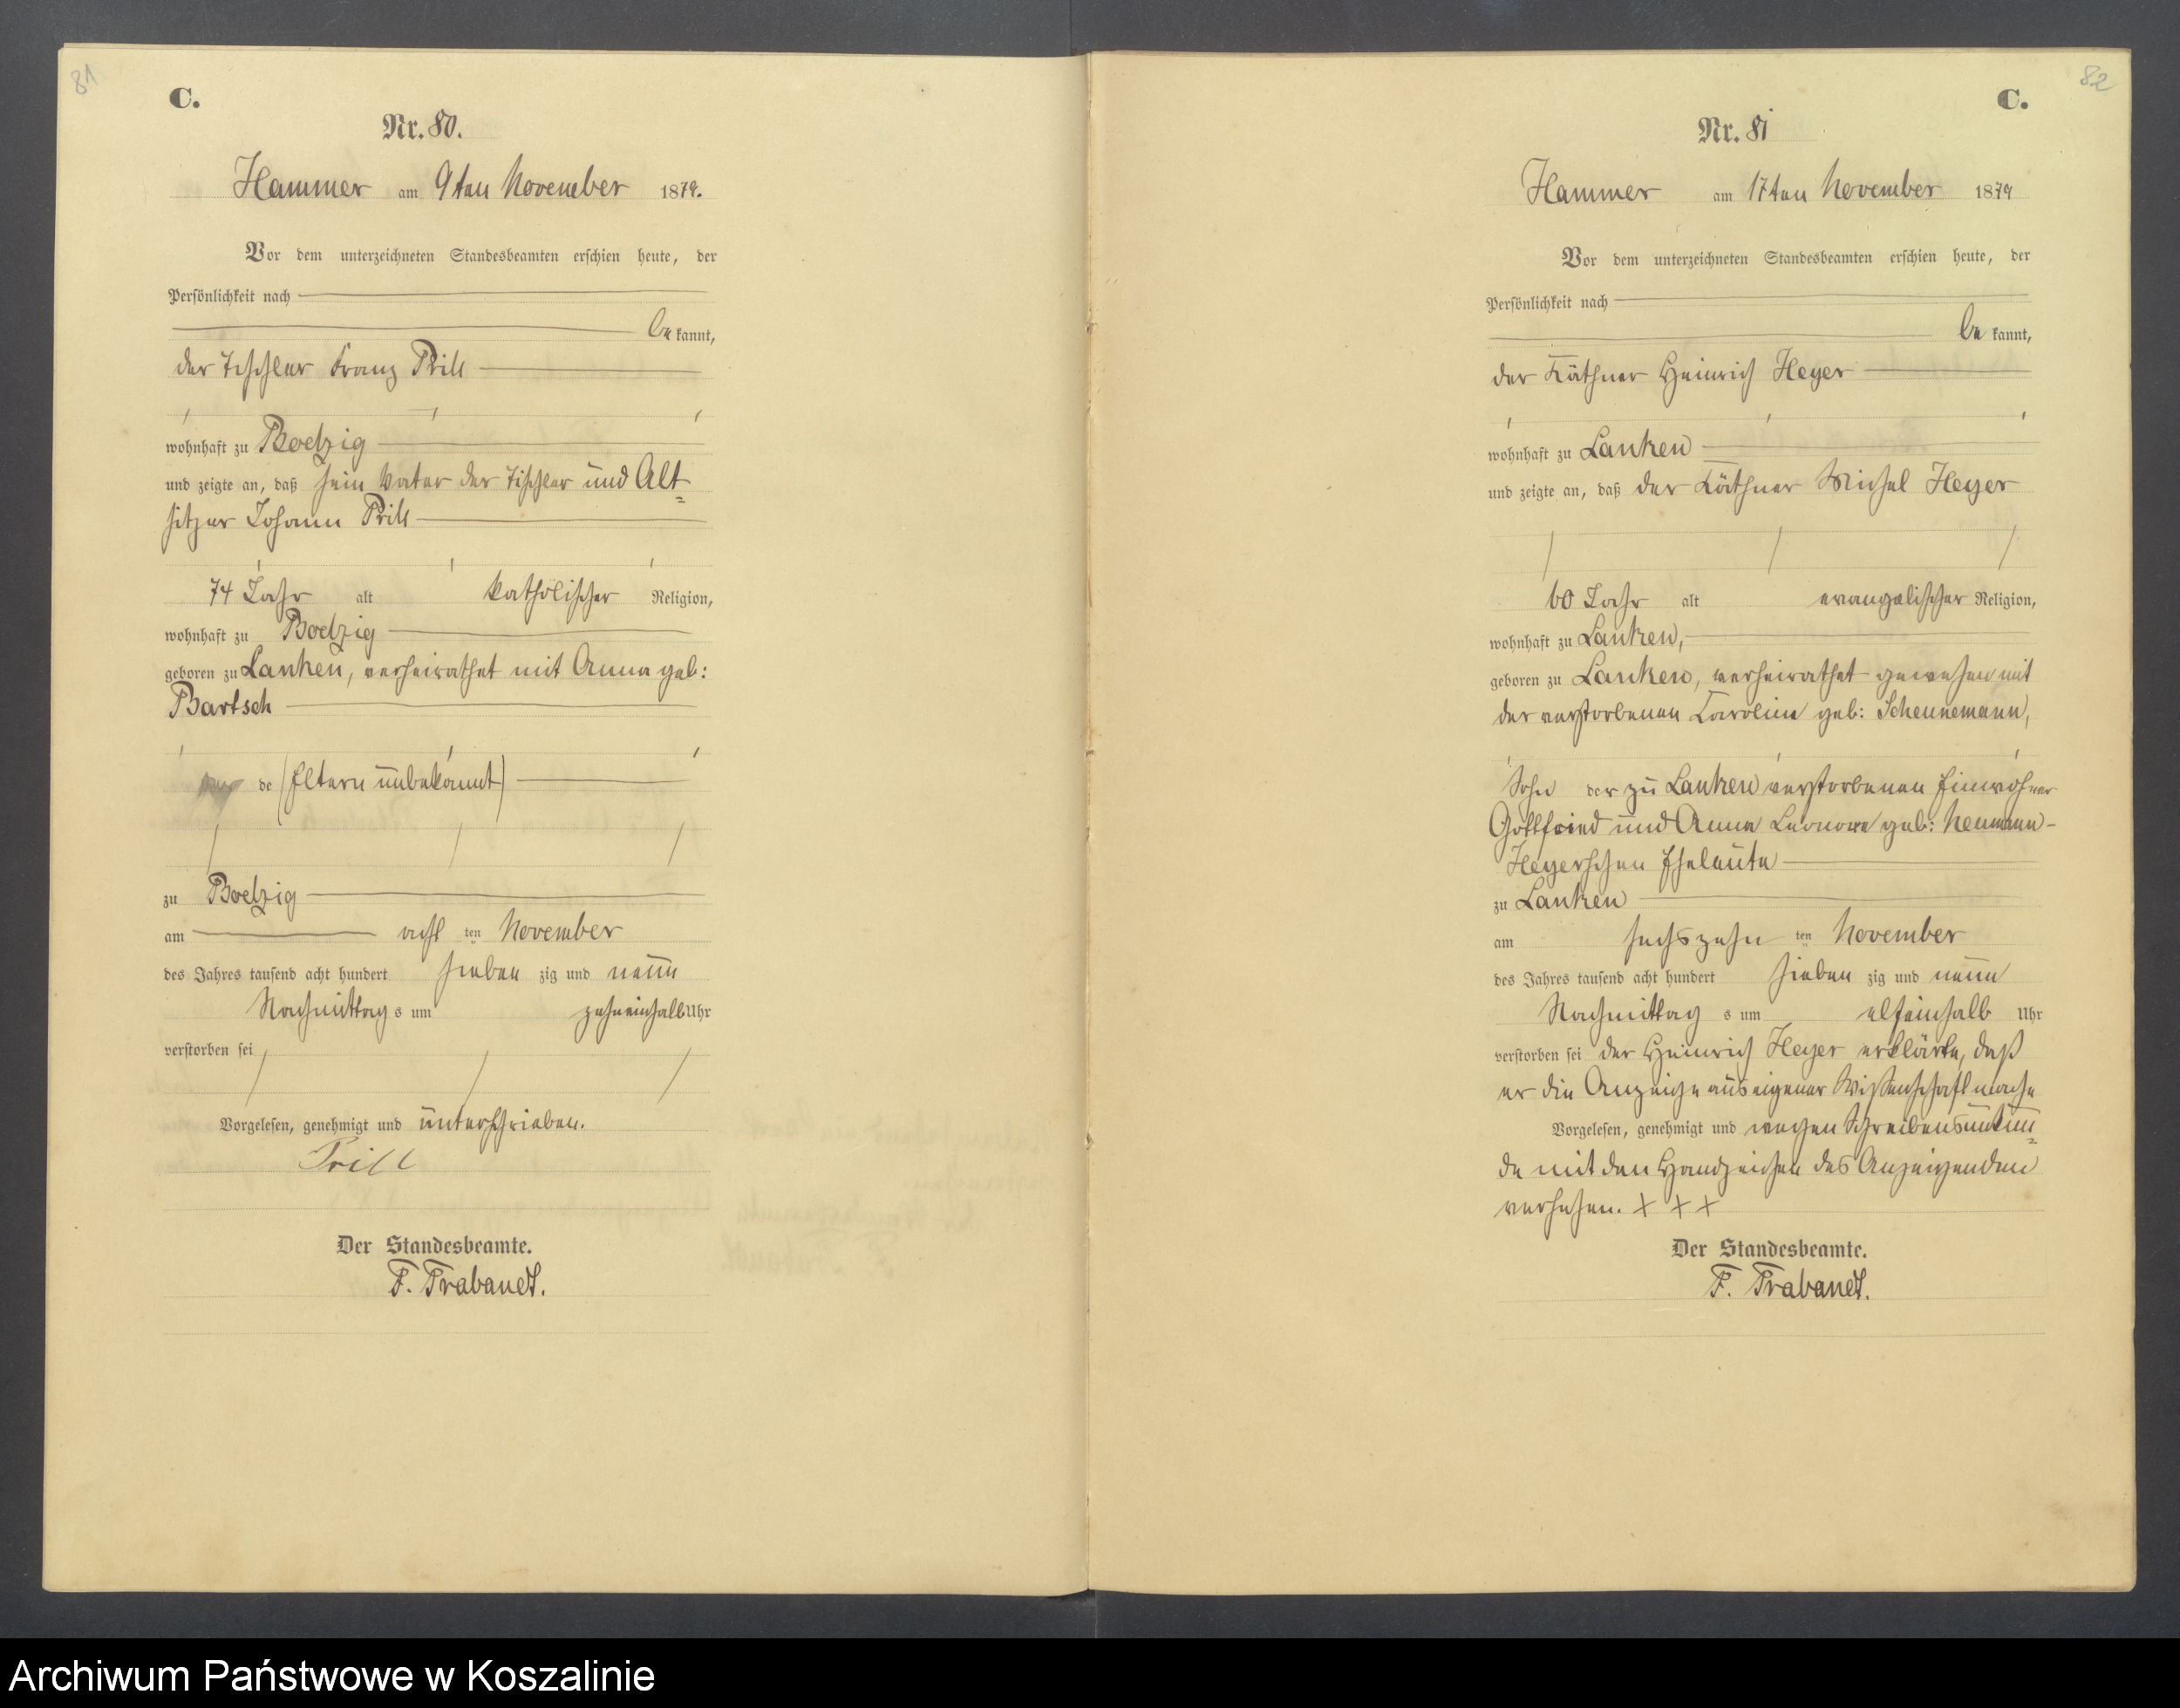 81
C.
Nr. 80.
Hammer am 9ten November 1879.
Vor dem unterzeichneten Standesbeamten erschien heute, der
Persönlichkeit nach
be kannt,
der Tischler Franz Prill
wohnhaft zu Boelzig
und zeigte an, daß sein Vater der Tischler und Alt=
sitzer Johann Prill
74 Jahr alt katholischer Religion,
wohnhaft zu Boelzig
geboren zu Lanken, verheirathet mit Anna geb:
Bartsch
de (Eltern unbekannt)
zu Boelzig
am acht ten November
des Jahres tausend acht hundert sieben zig und neun
Nachmittag s um zehneinhalb Uhr
verstorben sei
Vorgelesen, genehmigt und unterschrieben.
Prill
Der Standesbeamte.
F. Trabandt.
82
C.
Nr. 81
Hammer am 17ten November 1879
Vor dem unterzeichneten Standesbeamten erschien heute, der
Persönlichkeit nach
be kannt,
der Käthner Heinrich Heyer
wohnhaft zu Lanken
und zeigte an, daß der Käthner Michel Heyer
60 Jahr alt evangelischer Religion,
wohnhaft zu Lanken,
geboren zu Lanken, verheirathet gewesen mit
der verstorbenen Caroline geb: Scheunemann,
Sohn der zu Lanken verstorbenen Einwohner
Gottfried und Anna Leonore geb: Neumann-
Heyerschen Eheleute
zu Lanken
am sechszehn ten November
des Jahres tausend acht hundert sieben zig und neun
Nachmittag s um elfeinhalb Uhr
verstorben sei der Heinrich Heyer erklärte, daß
er die Anzeige aus eigener Wissenschaft mache
Vorgelesen, genehmigt und wegen Schreibensunkun=
de mit den Handzeichen des Anzeigenden
versehen. + + +
Der Standesbeamte.
F. Trabandt.
Archiwum Państwowe w Koszalinie